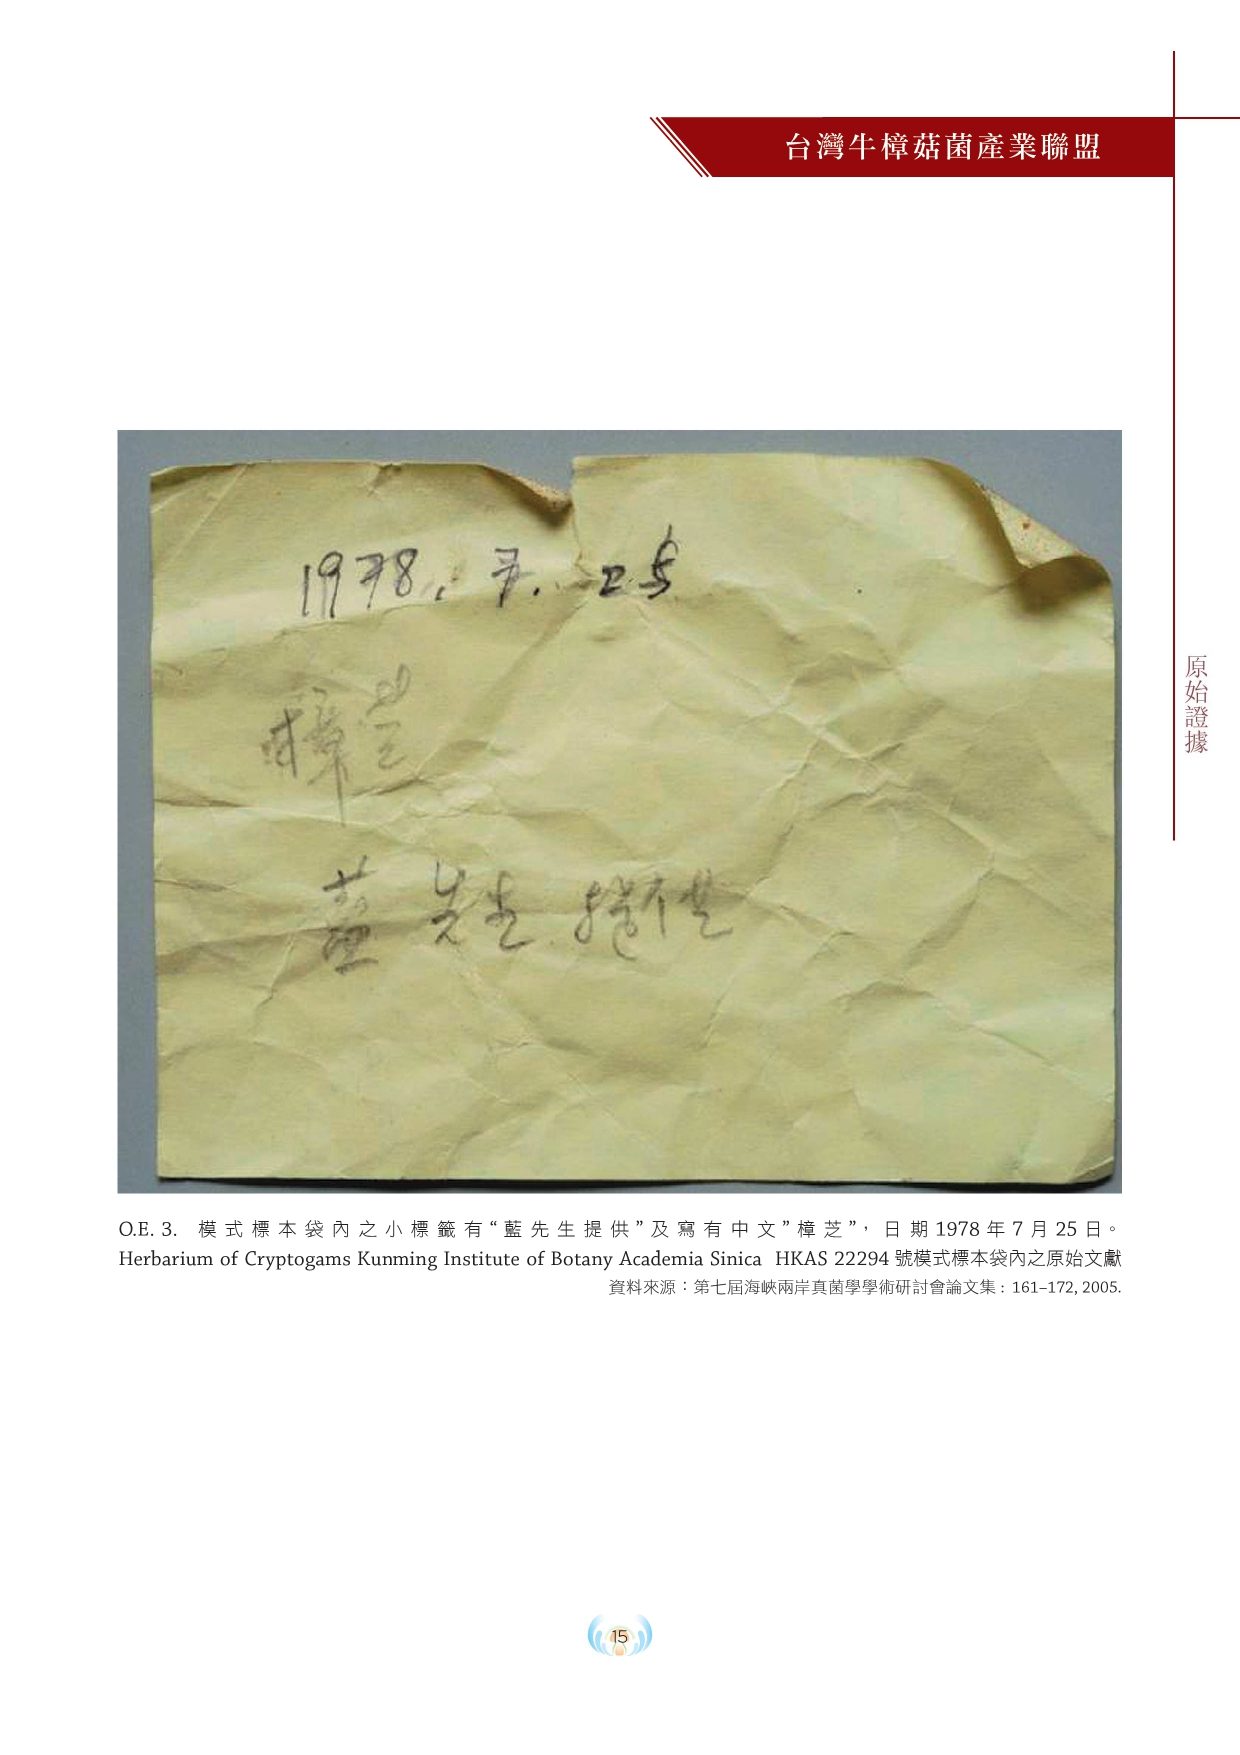 台灣牛樟菇菌產業聯盟
原始證據
1978. 7. 25
樟芝
藍先生提供
O.E. 3. 模式標本袋內之小標籤有“藍先生提供”及寫有中文”樟芝”，日期1978年7月25日。
Herbarium of Cryptogams Kunming Institute of Botany Academia Sinica HKAS 22294 號模式標本袋內之原始文獻
資料來源：第七屆海峽兩岸真菌學學術研討會論文集：161–172, 2005.
15